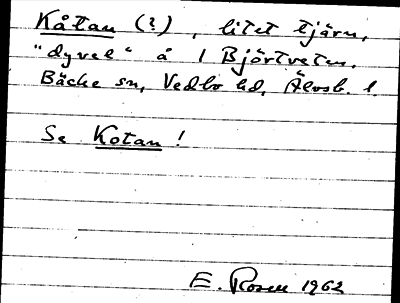 Kåtan (?), litet tjärn,
"dyvel" å 1 Björtveten.
Bäcke sn, Vedbo hd, Älvsb. l.
Se Kotan!
E. Rosen 1962